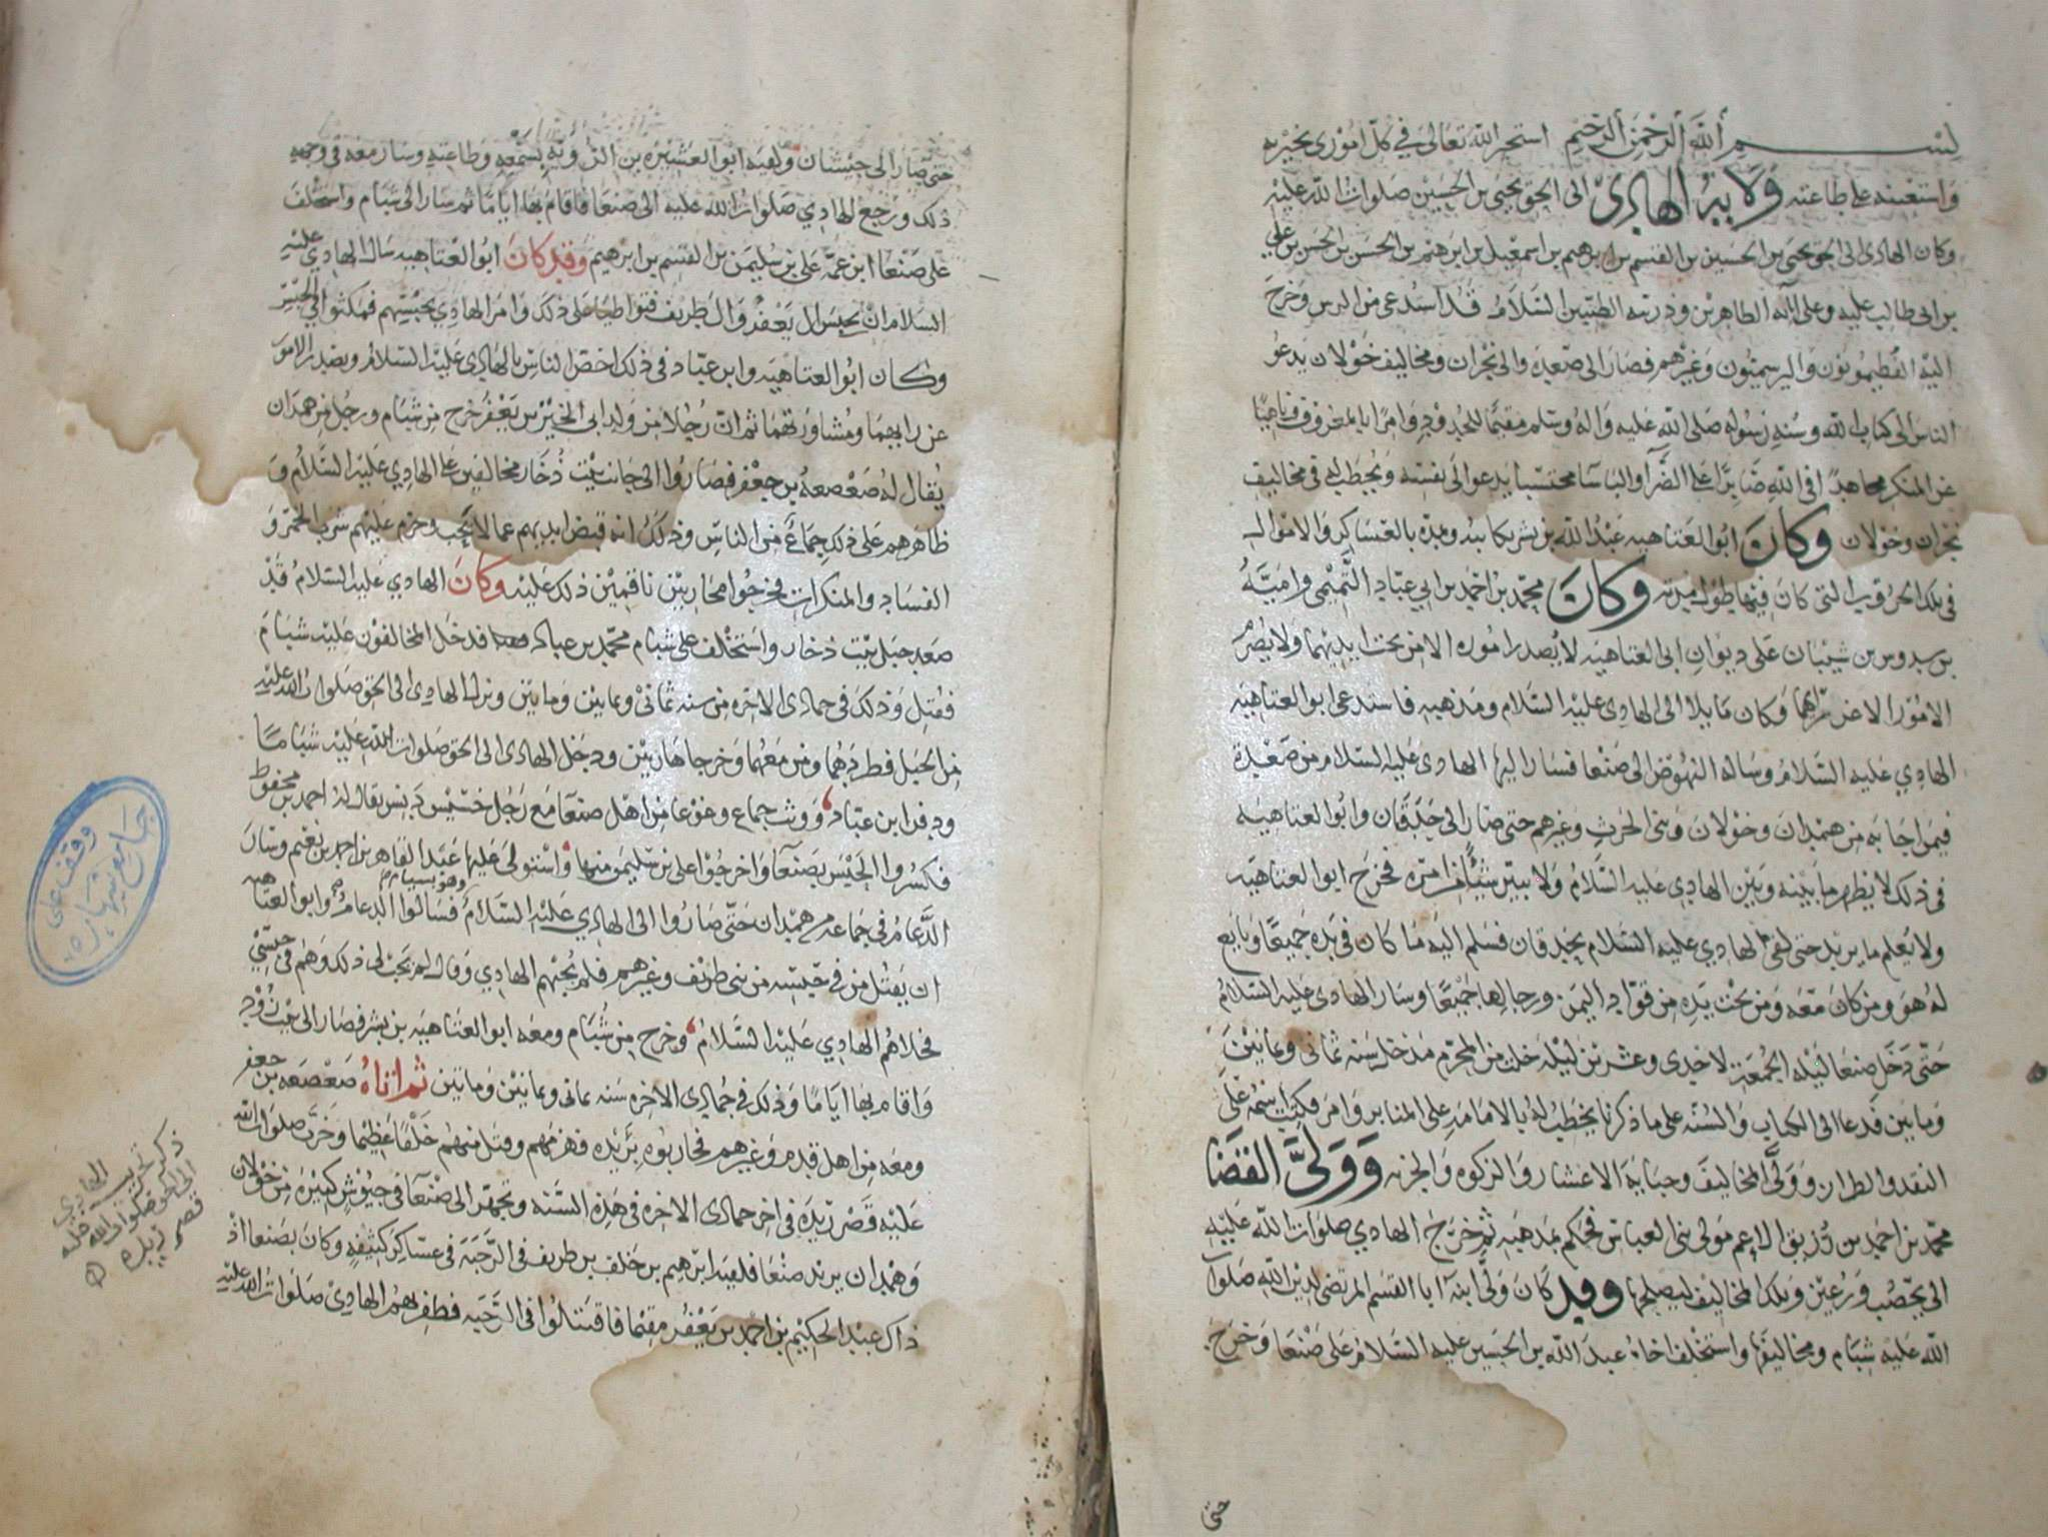 بسم الله الرحمن الرحيم استخير الله تعالى في كل اموري بخيرته
واستعينه على طاعته ولاية الهادي الى الحق يحيى بن الحسين صلوات الله عليه
وكان الهادي الى الحق يحيى بن الحسين بن القسم بن ابرهيم بن اسمعيل بن ابرهيم بن الحسن بن الحسن بن علي
بن ابي طالب عليه وعلى اله الطاهرين وذريته الطيبين السلام قد استدعي من الرس وخرج
اليه الفطيميون واليرسميون وغيرهم فصار الى صعدة والى نجران ومخاليف خولان يدعو
الناس الى كتاب الله وسنه رسوله صلى الله عليه واله وسلم مقيما للحدود وامرا بالمعروف ناهيا
عن المنكر مجاهدا في الله صابرا على الضرآ والباسا محتسبا يدعو الى نفسه ويخطب له في مخاليف
نجران وخولان وكان ابو العتاهيه عبد الله بن بشر يكاتبه ويمده بالعساكر والاموال
في تلك الحروب التي كان فيها طول مدته وكان محمد بن احمد بن ابي عباد التميمي واميه
بن سدوس بن شيبان على ديوان ابي العتاهيه لا يصدر اموره الا من تحت ايديهما ولا يصرم
الامور الا عن رايهما وكان مايلا الى الهادي عليه السلام ومذهبه فاستدعى ابو العتاهيه
الهادي عليه السلام وساله النهوض الى صنعا فسار اليها الهادي عليه السلام من صعدة
فيمن اجابه من همدان وخولان وبني الحرث وغيرهم حتى صار الى حدقان وابو العتاهيه
في ذلك لا يظهر ما بينه وبين الهادي عليه السلام ولا يبين شيئا من امره فخرج ابو العتاهيه
ولا يعلم ما يريد حتى لقي الهادي عليه السلام بحدقان فسلم اليه ما كان في يده جميعا وبايع
له هو ومن كان معه ومن تحت يده من قواد اليمن ورجالها جميعا وسار الهادي عليه السلام
حتى دخل صنعا ليله الجمعة لاحدى وعشرين ليله خلت من المحرم مدخل سنه ثماني وثمانين
ومايتين فدعا الى الكتاب والسنه على ما ذكرنا يخطب له بالامامه على المنابر وامر فكتب اسمه على
النقد والطراز وولى المخاليف وجباية الاعشار والزكوه والجزيه وولى القضا
محمد بن احمد بن رزيق الاعجم مولى بني العباس فحكم بمذهبه ثم خرج الهادي صلوات الله عليه
الى يحصب ورعين وتلك المخاليف ليصلحها وقد كان ولى ابنه ابا القسم المرتضى لدين الله صلوات
الله عليه شبام ومخاليفها واستخلف اخاه عبد الله بن الحسين عليه السلام على صنعا وخرج
حتى
حتى صار الى جيشان ولقيه ابو العشيره بن الرويه بسمعه وطاعته وسار معه في وجهه
ذلك ورجع الهادي صلوات الله عليه الى صنعا فاقام بها اياما ثم سار الى شبام واستخلف
على صنعا ابن عمه علي بن سليمن بن القسم بن ابرهيم وقد كان ابو العتاهيه سال الهادي عليه
السلام ان يحبس ال يعفر وال طريف فتواطيا على ذلك وامر الهادي بحبسهم فمكثوا في الحبس
وكان ابو العتاهيه وابن عباد في ذلك اخص الناس بالهادي عليه السلام ويصدر الامور
عن رايهما ومشاورتهما ثم ان رجلا من ولد ابي الخير بن يعفر خرج من شبام ورجل من همدان
يقال له صعصعه بن جعفر فصاروا الى جانب بيت ذخار مخالفين على الهادي عليه السلام و
ظاهرهم على ذلك جماعة من الناس وذلك انه قبض ايديهم عما لا يجب وحرم عليهم شرب الخمر و
الفساد والمنكرات فخرجوا محاربين ناقمين ذلك عليه وكان الهادي عليه السلام قد
صعد جبل بيت ذخار واستخلف على شبام محمد بن عباد فدخل المخالفون عليه شبام
فقتل وذلك في جمادى الاخره من سنه ثماني وثمانين ومايتين ونزل الهادي الى الحق صلوات الله عليه
من الجبل فطردهما ومن معهما وخرجا هاربين ودخل الهادي الى الحق صلوات الله عليه شباما
ودفن ابن عباد ووثب جماع وغوغا من اهل صنعآ مع رجل خسيس دنس يقال له احمد بن محفوظ
فكسروا الحبس بصنعآ واخرجوا علي بن سليمن منها واستولى عليها عبد القاهر بن احمد بن يعفر وسار
الدعام في جماعه من همدان حتى صاروا الى الهادي عليه السلام وهو بشبام فسالوا الدعام وابو العتاهيه
ان يقتل من في حبسه من بني طريف وغيرهم فلم يجبهم الهادي وقال لم يجب لي ذلك وهم في حبسي
فخلاهم الهادي عليه السلام وخرج من شبام ومعه ابو العتاهيه بن بشر فصار الى
واقام بها اياما وذلك في جمادى الاخره سنه ثماني وثمانين ومايتين ثم اتاه صعصعه بن جعفر
ومعه من اهل قدم وغيرهم فحاربوه بريده فهزمهم وقتل منهم خلقا عظيما وخرب صلوات الله
عليه قصر ريده في اخر جمادى الاخره في هذه السنه وتجهز الى صنعآ في جيوش كثيره من خولان
وهمدان يريد صنعا فلقيه ابرهيم بن خلف بن طريف في الرحبه في عساكر كثيفه وكان بصنعا اذ
ذاك عبد الحكيم بن احمد بن يعفر مقيما فاقتتلوا في الرحبه فظفر بهم الهادي صلوات الله عليه
وقف على
جامع شهاره
ذكر تخريب الهادي
الى الحق صلوات الله عليه
قصر ريده